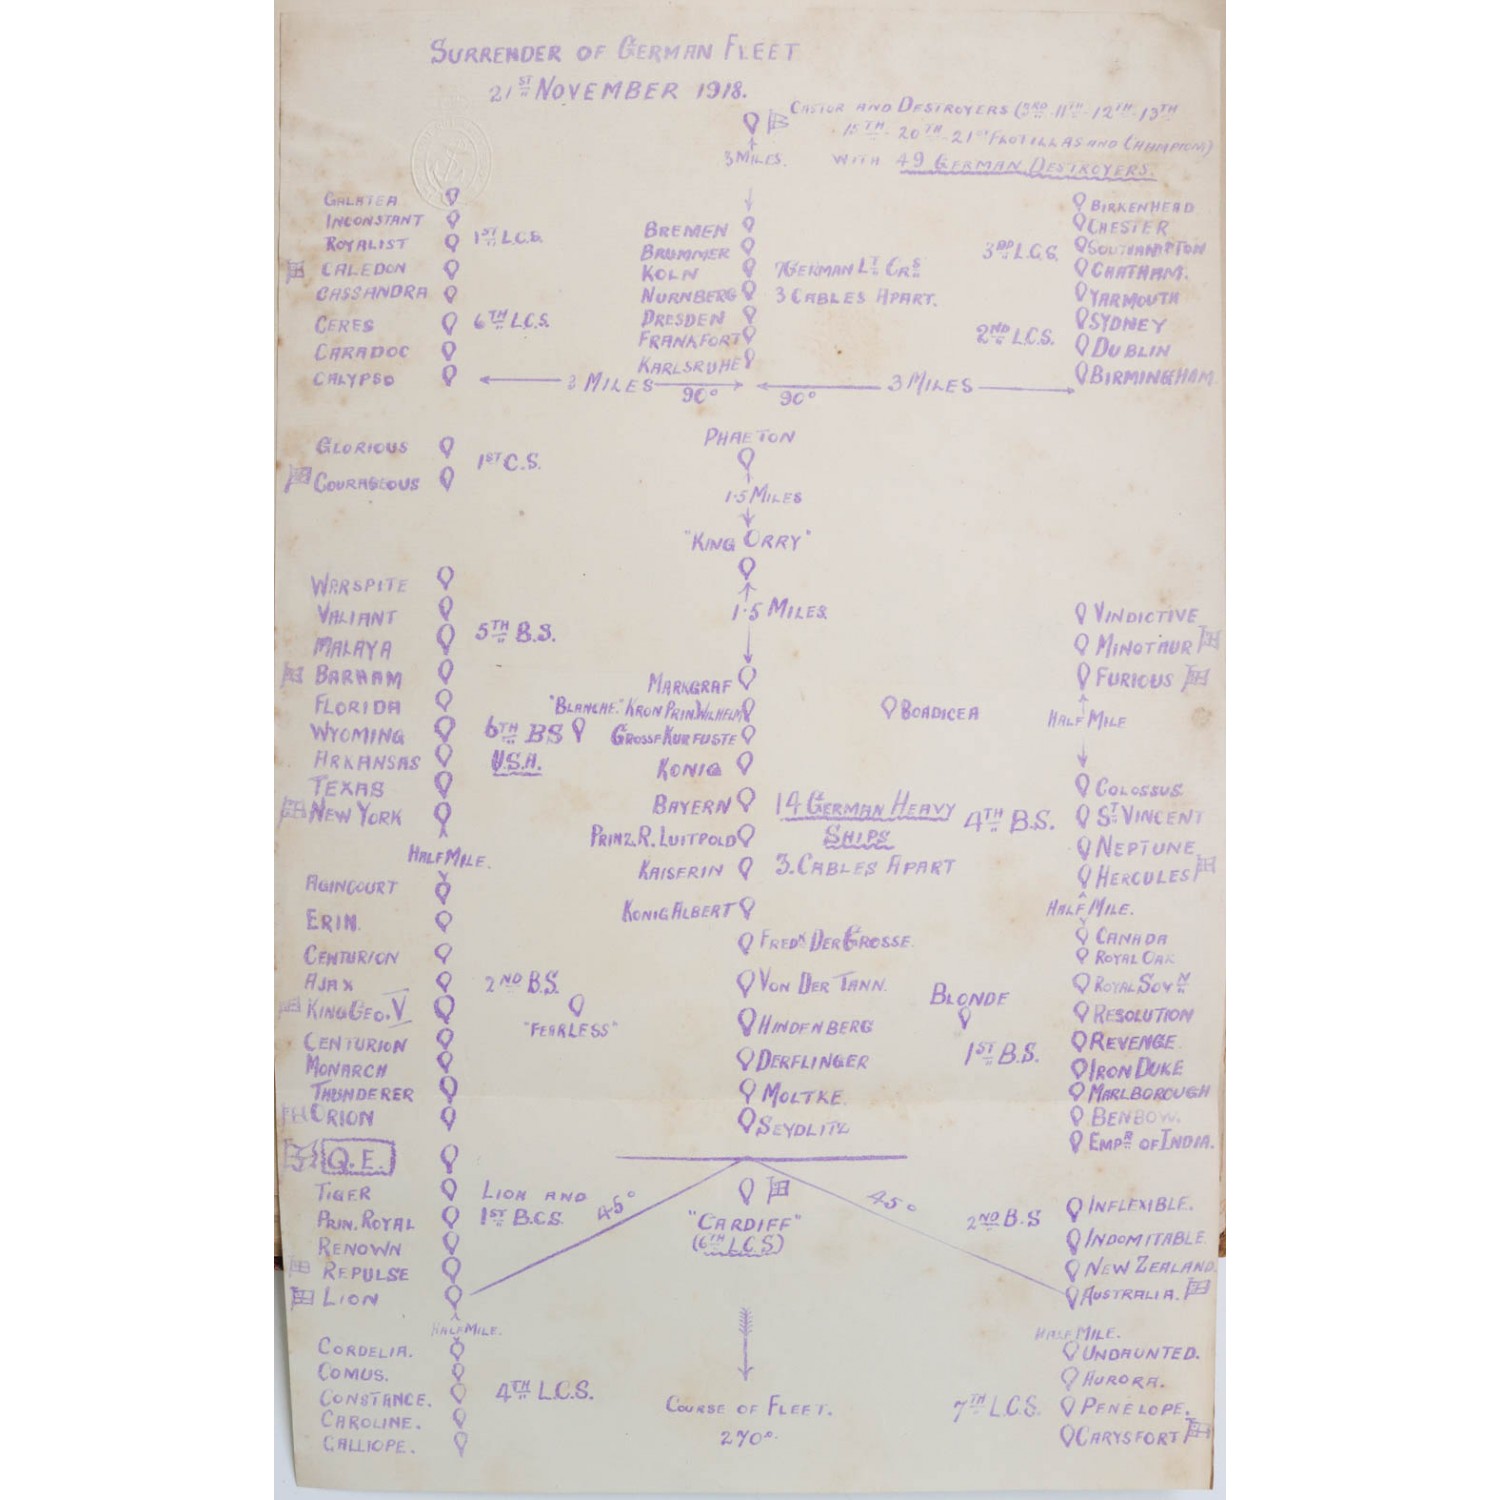 SURRENDER OF GERMAN FLEET
21ST NOVEMBER 1918.
CASTOR AND DESTROYERS (3RD. 11TH. 12TH. 13TH
15TH. 20TH. 21ST FLOTILLAS AND CHAMPION)
WITH 49 GERMAN DESTROYERS.
3 MILES.
GALATEA
INCONSTANT
ROYALIST
CALEDON
CASSANDRA
CERES
CARADOC
CALYPSO
1ST L.C.S.
6TH L.C.S.
BREMEN
BRUMMER
KOLN
NURNBERG
DRESDEN
FRANKFORT
KARLSRUHE
7 GERMAN LT CRS
3 CABLES APART.
BIRKENHEAD
CHESTER
SOUTHAMPTON
CHATHAM.
YARMOUTH
SYDNEY
DUBLIN
BIRMINGHAM.
3RD L.C.S.
2ND L.C.S.
3 MILES
90°
90°
3 MILES
GLORIOUS
COURAGEOUS
1ST C.S.
PHAETON
1.5 MILES
"KING ORRY"
1.5 MILES
WARSPITE
VALIANT
MALAYA
BARHAM
FLORIDA
WYOMING
ARKANSAS
TEXAS
NEW YORK
5TH B.S.
6TH BS
U.S.A.
"BLANCHE."
HALF MILE.
MARKGRAF
KRON PRIN. WILHELM
GROSSE KURFUSTE
KONIG
BAYERN
PRINZ. R. LUITPOLD
KAISERIN
KONIG ALBERT
FREDK DER GROSSE.
VON DER TANN.
HINDENBERG
DERFLINGER
MOLTKE.
SEYDLITZ
14 GERMAN HEAVY
SHIPS
3. CABLES APART
BOADICEA
VINDICTIVE
MINOTAUR
FURIOUS
HALF MILE
COLOSSUS
ST VINCENT
NEPTUNE
HERCULES
4TH B.S.
HALF MILE.
CANADA
ROYAL OAK
ROYAL SOVN
RESOLUTION
REVENGE
IRON DUKE
MARLBOROUGH
BENBOW.
EMPR OF INDIA.
BLONDE
1ST B.S.
AGINCOURT
ERIN.
CENTURION
AJAX
KING GEO. V
CENTURION
MONARCH
THUNDERER
ORION
2ND B.S.
"FEARLESS"
Q.E.
TIGER
PRIN. ROYAL
RENOWN
REPULSE
LION
LION AND
1ST B.C.S.
45°
"CARDIFF"
(6TH L.C.S)
45°
2ND B.S
INFLEXIBLE.
INDOMITABLE.
NEW ZEALAND.
AUSTRALIA.
HALF MILE.
CORDELIA.
COMUS.
CONSTANCE.
CAROLINE.
CALLIOPE.
4TH L.C.S.
COURSE OF FLEET.
270°.
HALF MILE.
UNDAUNTED.
AURORA.
PENELOPE.
CARYSFORT
7TH L.C.S.